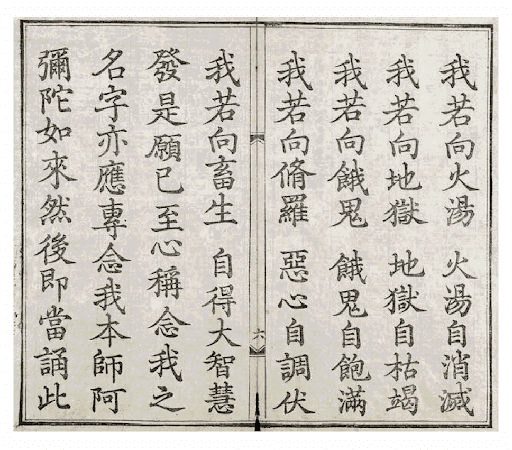 我若向火湯 火湯自消滅
我若向地獄 地獄自枯竭
我若向餓鬼 餓鬼自飽滿
我若向脩羅 惡心自調伏
六
我若向畜生 自得大智慧
發是願已至心稱念我之
名字亦應專念我本師阿
彌陀如來然後即當誦此